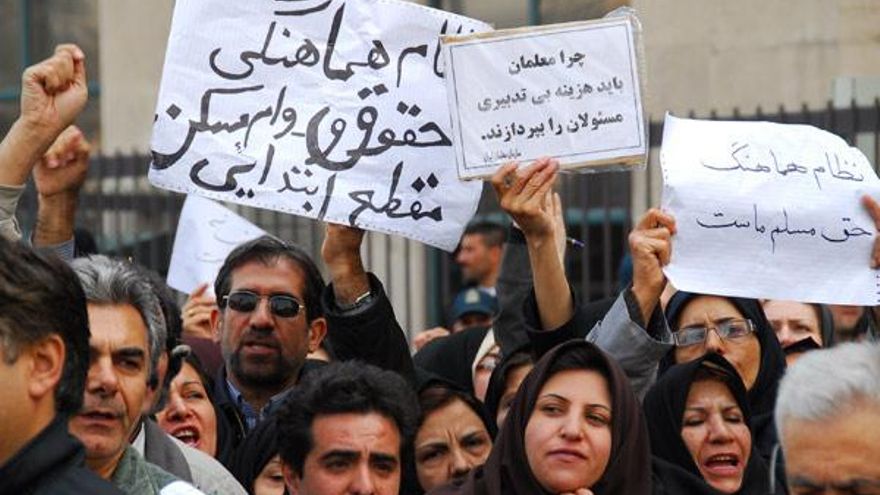 نظام هماهنگی
حقوقی وام مسکن
مقطع ابتدایی
چرا معلمان
باید هزینه بی تدبیری
مسئولان را بپردازند.
نظام هماهنگ
حق مسلم ماست